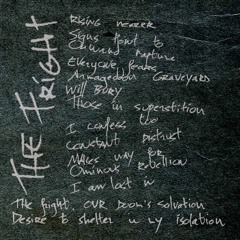 THE FRIGHT
RISING NEARER
Signs point to
Rapture
Everyone
Armageddon Graveyard
Will Bury
Those in superstition
I confess too
Constant Distrust
Makes way for
Ominous Rebellion
I am lost in
The Fright, OUR Doom's Salvation
Desire to shelter in my isolation